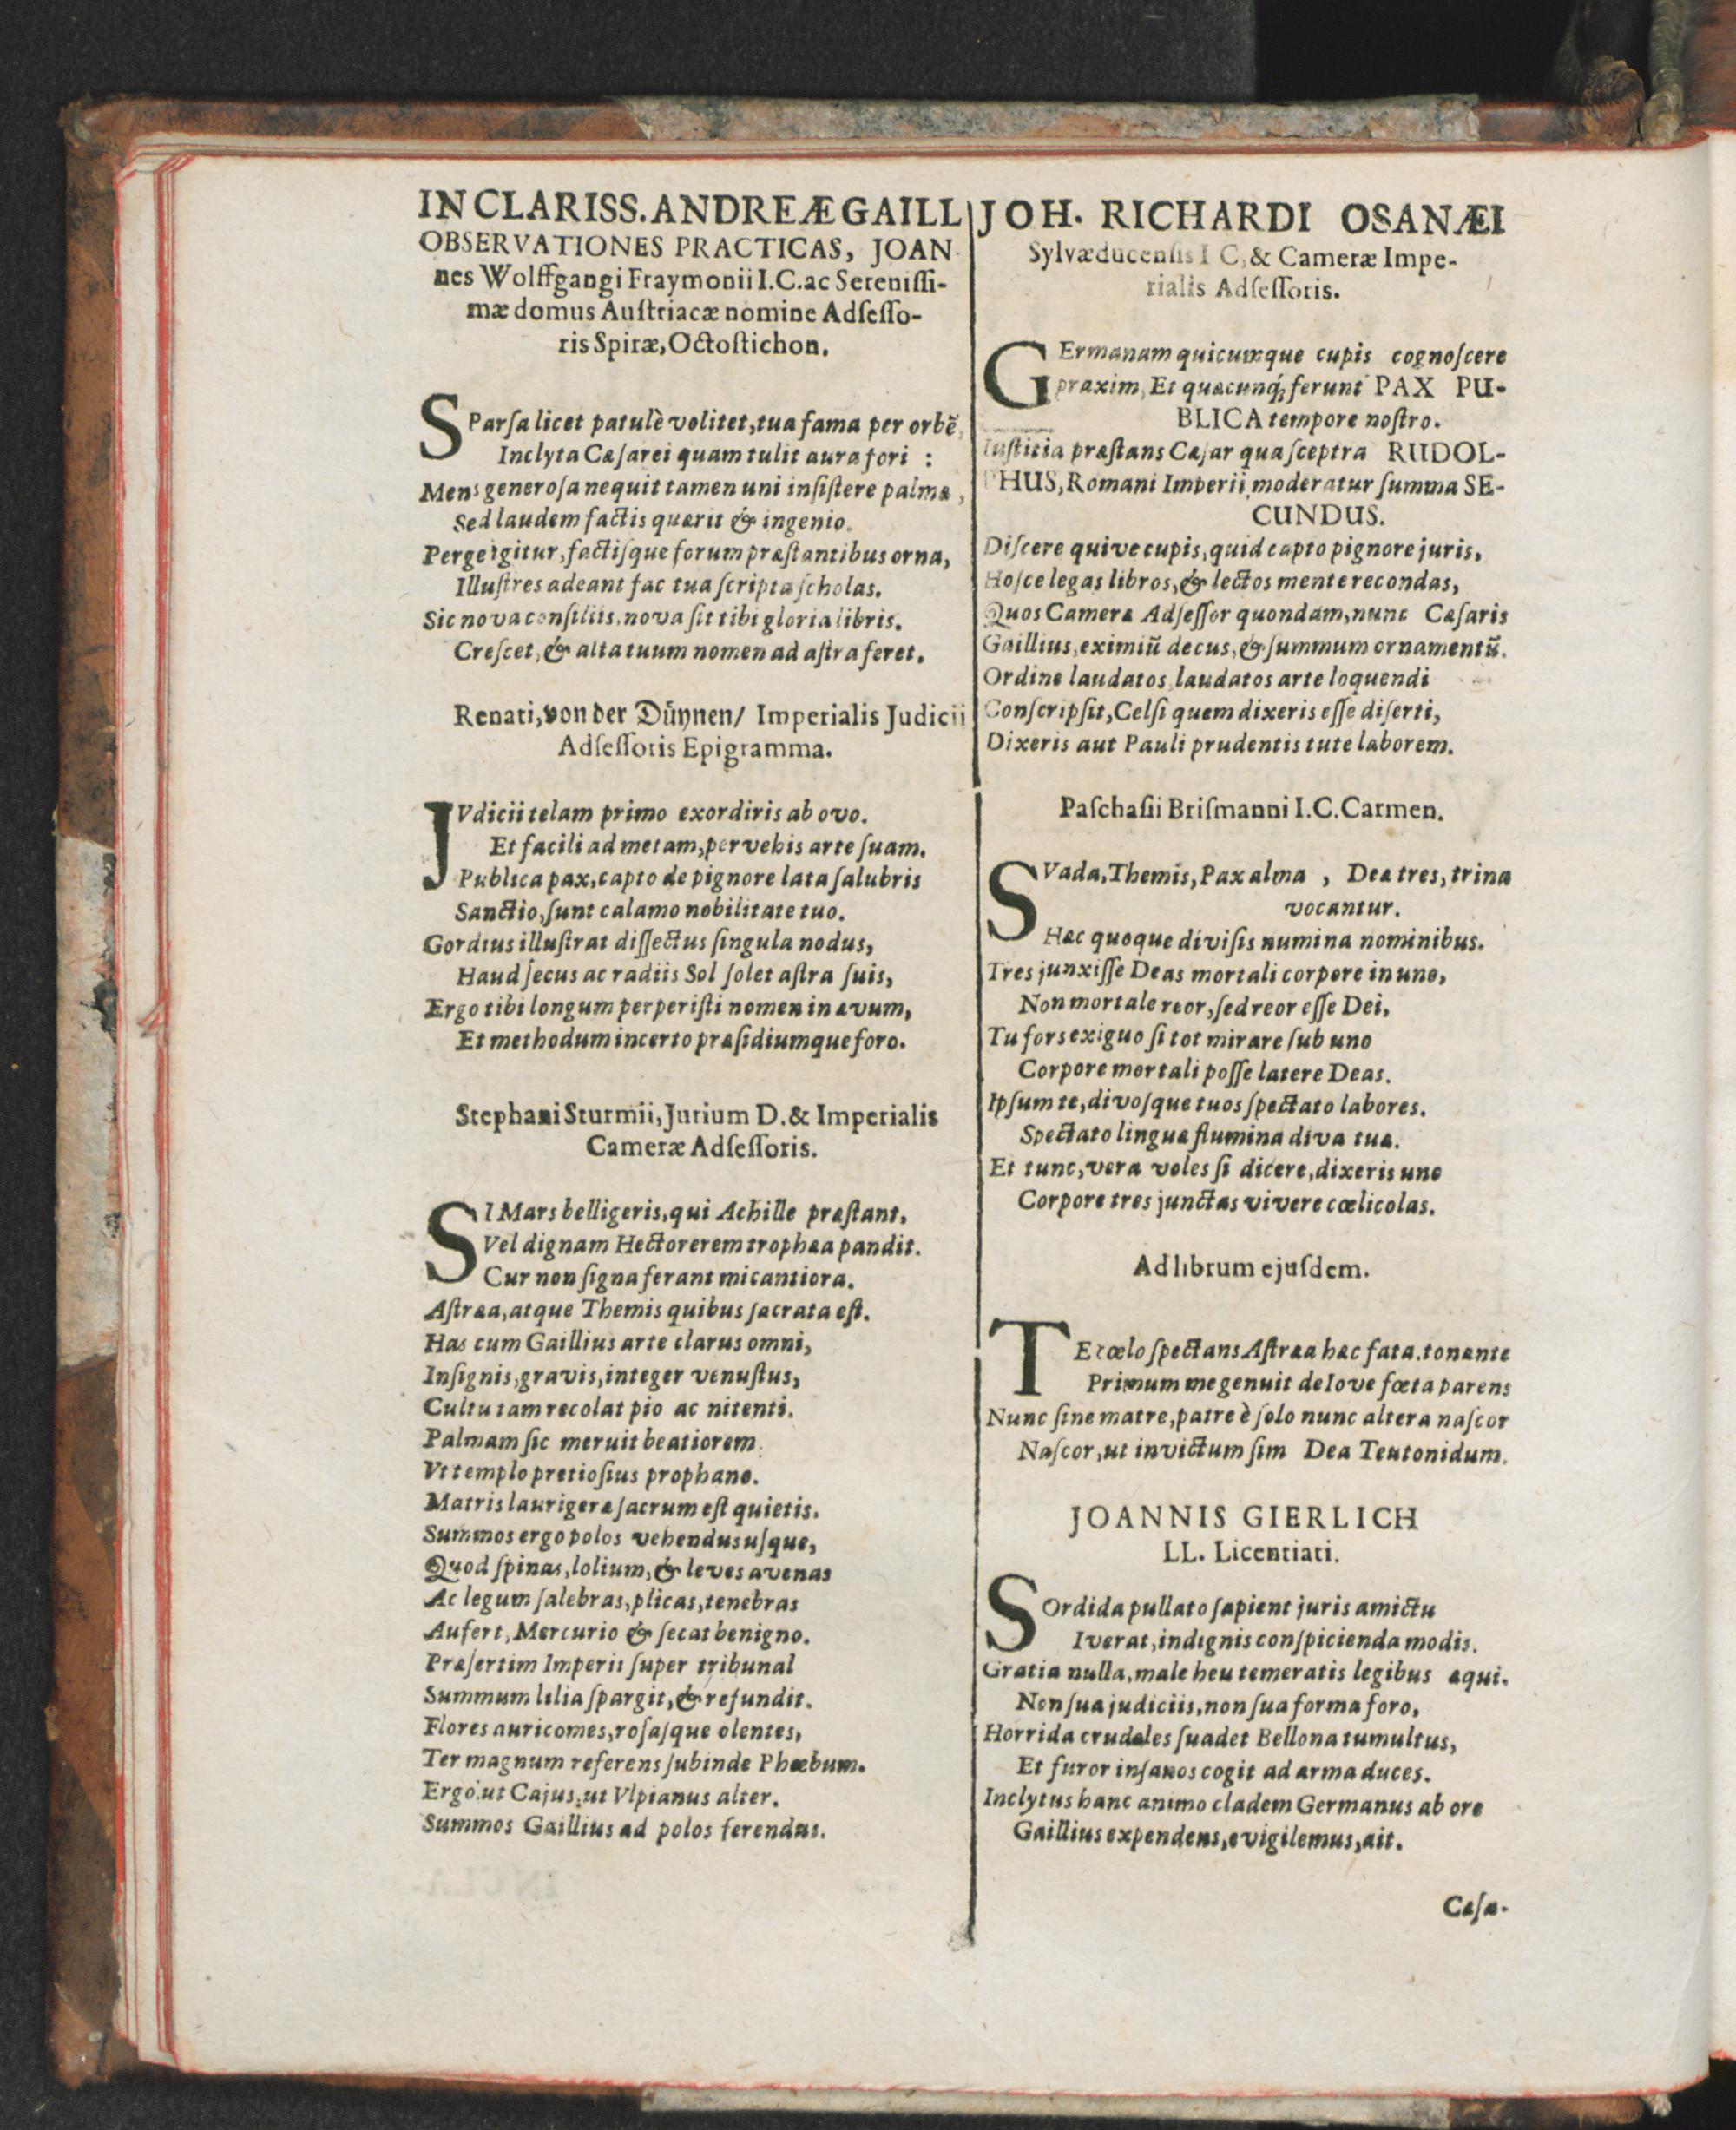 IN CLARISS. ANDREÆ GAILL
OBSERVATIONES PRACTICAS, JOAN
nes Wolffgangi Fraymonii I.C. ac Sereniſſi-
mæ domus Auſtriacæ nomine Adſeſſo-
ris Spiræ, Octoſtichon.
SParſa licet patulè volitet, tua fama per orbẽ,
Inclyta Cæſarei quam tulit aura fori :
Mens generoſa nequit tamen uni inſiſtere palmæ,
Sed laudem factis quærit & ingenio.
Perge igitur, factiſque forum præſtantibus orna,
Illuſtres adeant fac tua ſcripta ſcholas.
Sic nova conſiliis, nova ſit tibi gloria libris.
Creſcet, & alta tuum nomen ad aſtra feret.
Renati, von der Dünnen/ Imperialis Judicii
Adſeſſoris Epigramma.
JVdicii telam primo exordiris ab ovo.
Et facili ad metam, pervehis arte ſuam.
Publica pax, capto de pignore lata ſalubris
Sanctio, ſunt calamo nobilitate tuo.
Gordius illuſtrat diſſectus ſingula nodus,
Haud ſecus ac radiis Sol ſolet aſtra ſuis,
Ergo tibi longum perperiſti nomen in ævum,
Et methodum incerto præſidiumque foro.
Stephani Sturmii, Jurium D. & Imperialis
Cameræ Adſeſſoris.
SI Mars belligeris, qui Achille præſtant,
Vel dignam Hectorerem trophæa pandit.
Cur non ſigna ferant micantiora.
Aſtræa, atque Themis quibus ſacrata eſt.
Has cum Gaillius arte clarus omni,
Inſignis, gravis, integer venuſtus,
Cultu tam recolat pio ac nitenti.
Palmam ſic meruit beatiorem.
Vt templo pretioſius prophano.
Matris laurigeræ ſacrum eſt quietis.
Summos ergo polos vehendus uſque,
Quod ſpinas, lolium, & leves avenas
Ac legum ſalebras, plicas, tenebras
Aufert, Mercurio & ſecat benigno.
Præſertim Imperii ſuper tribunal
Summum lilia ſpargit, & refundit.
Flores auricomes, roſaſque olentes,
Ter magnum referens ſubinde Phœbum.
Ergo ut Cajus, ut Vlpianus alter.
Summos Gaillius ad polos ferendus.
JOH. RICHARDI OSANÆI
Sylvæducenſis I C, & Cameræ Impe-
rialis Adſeſſoris.
GErmanam quicumque cupis cognoſcere
praxim, Et quæcunq́ ferunt PAX PU-
BLICA tempore noſtro.
Iuſtitia præſtans Cæſar qua ſceptra RUDOL-
PHUS, Romani Imperii moderatur ſumma SE-
CUNDUS.
Diſcere quive cupis, quid capto pignore juris,
Hoſce legas libros, & lectos mente recondas,
Quos Cameræ Adſeſſor quondam, nunc Cæſaris
Gaillius, eximiũ decus, & ſummum ornamentũ.
Ordine laudatos, laudatos arte loquendi
Conſcripſit, Celſi quem dixeris eſſe diſerti,
Dixeris aut Pauli prudentis tute laborem.
Paſchaſii Briſmanni I.C. Carmen.
SVada, Themis, Pax alma , Deæ tres, trina
vocantur.
Hæc quoque diviſis numina nominibus.
Tres junxiſſe Deas mortali corpore in uno,
Non mortale reor, ſed reor eſſe Dei,
Tu fors exiguo ſi tot mirare ſub uno
Corpore mortali poſſe latere Deas.
Ipſum te, divoſque tuos ſpectato labores.
Spectato linguæ flumina diva tuæ.
Et tunc, vera voles ſi dicere, dixeris uno
Corpore tres junctas vivere cœlicolas.
Ad librum ejuſdem.
TE cœlo ſpectans Aſtræa hæc fata. tonante
Primum me genuit de Iove fœta parens
Nunc ſine matre, patre è ſolo nunc altera naſcor
Naſcor, ut invictum ſim Dea Teutonidum.
JOANNIS GIERLICH
LL. Licentiati.
SOrdida pullato ſapient juris amictu
Iverat, indignis conſpicienda modis.
Gratia nulla, male heu temeratis legibus æqui.
Non ſua judiciis, non ſua forma foro,
Horrida crudeles ſuadet Bellona tumultus,
Et furor inſanos cogit ad arma duces.
Inclytus hanc animo cladem Germanus ab ore
Gaillius expendens, evigilemus, ait.
Cæſa-